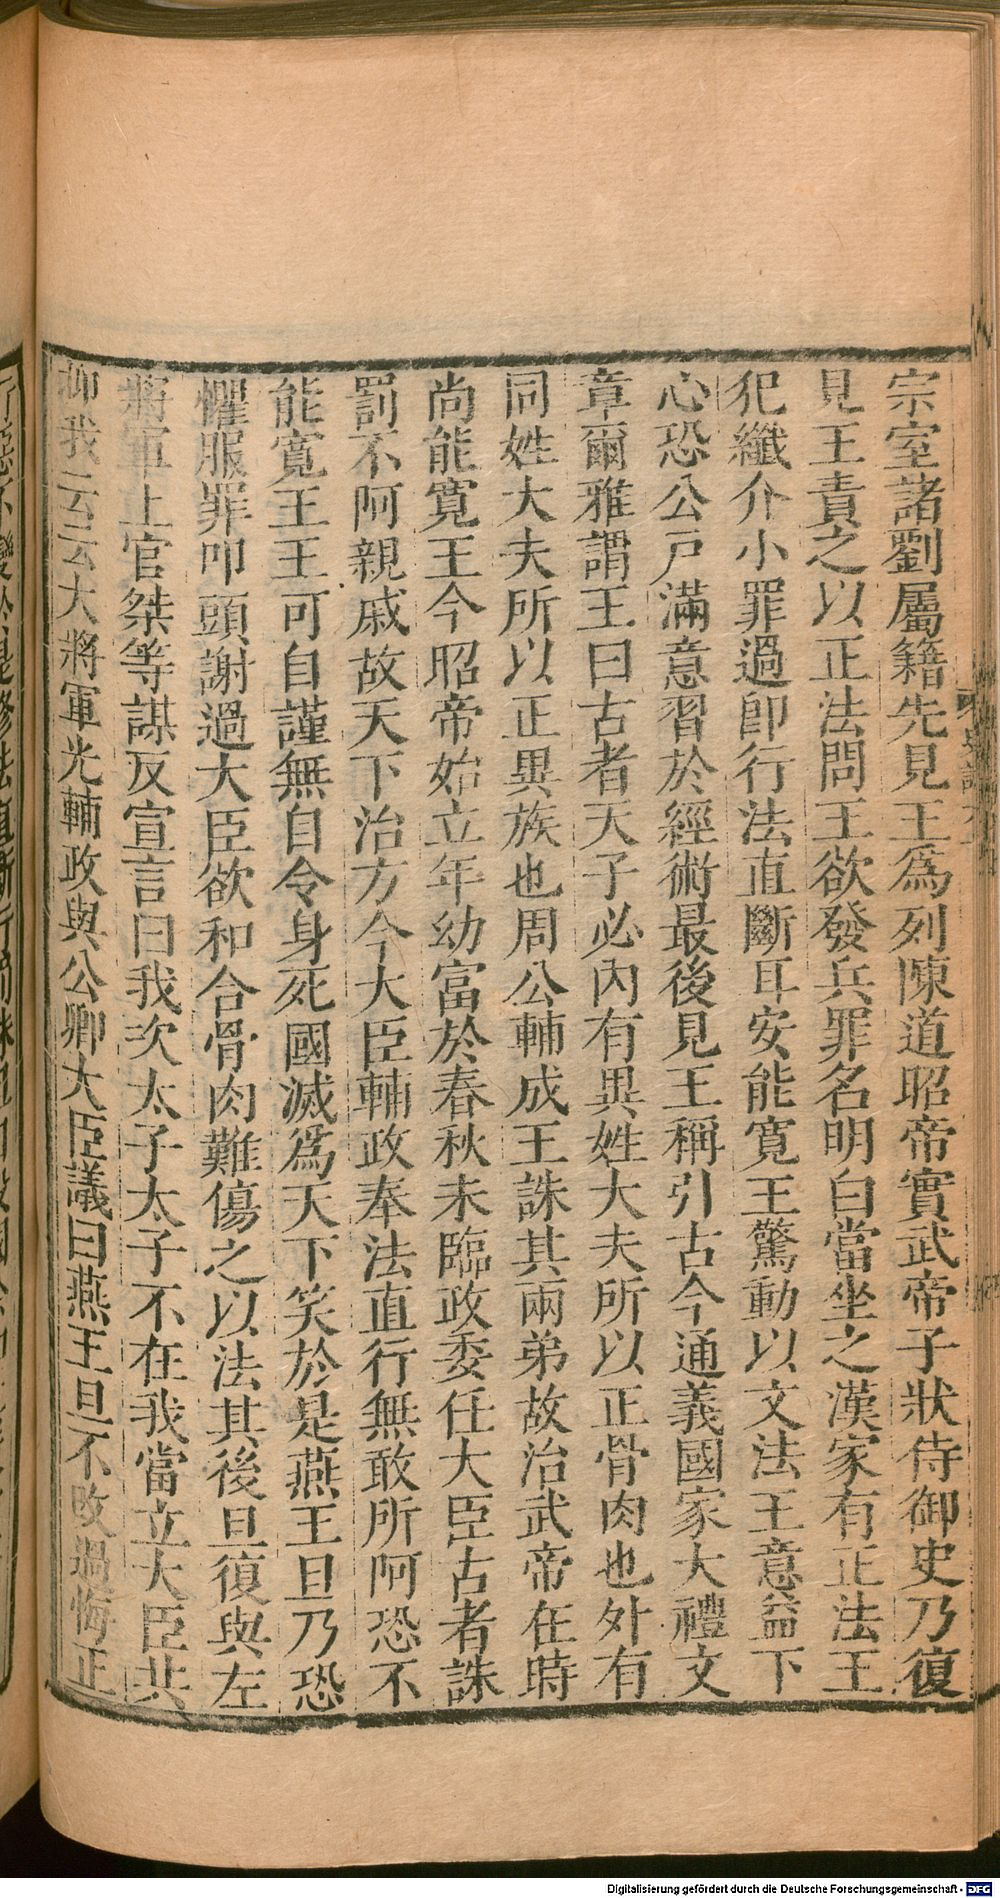 宗室諸劉屬籍先見王爲列陳道昭帝實武帝子狀侍御史乃復
見王責之以正法問王欲發兵罪名明白當坐之漢家有正法王
犯纖介小罪過即行法直斷耳安能寬王驚動以文法王意益下
心恐公戸滿意習於經術最後見王稱引古今通義國家大禮文
章爾雅謂王曰古者天子必內有異姓大夫所以正骨肉也外有
同姓大夫所以正異族也周公輔成王誅其兩弟故治武帝在時
尚能寬王今昭帝始立年幼富於春秋未臨政委任大臣古者誅
罰不阿親戚故天下治方今大臣輔政奉法直行無敢所阿恐不
能寬王王可自謹無自令身死國滅爲天下笑於是燕王旦乃恐
懼服罪叩頭謝過大臣欲和合骨肉難傷之以法其後旦復與左
將軍上官桀等謀反宣言曰我次太子太子不在我當立大臣共
抑我云云大將軍光輔政與公卿大臣議曰燕王旦不改過悔正
Digitalisierung gefördert durch die Deutsche Forschungsgemeinschaft - DFG